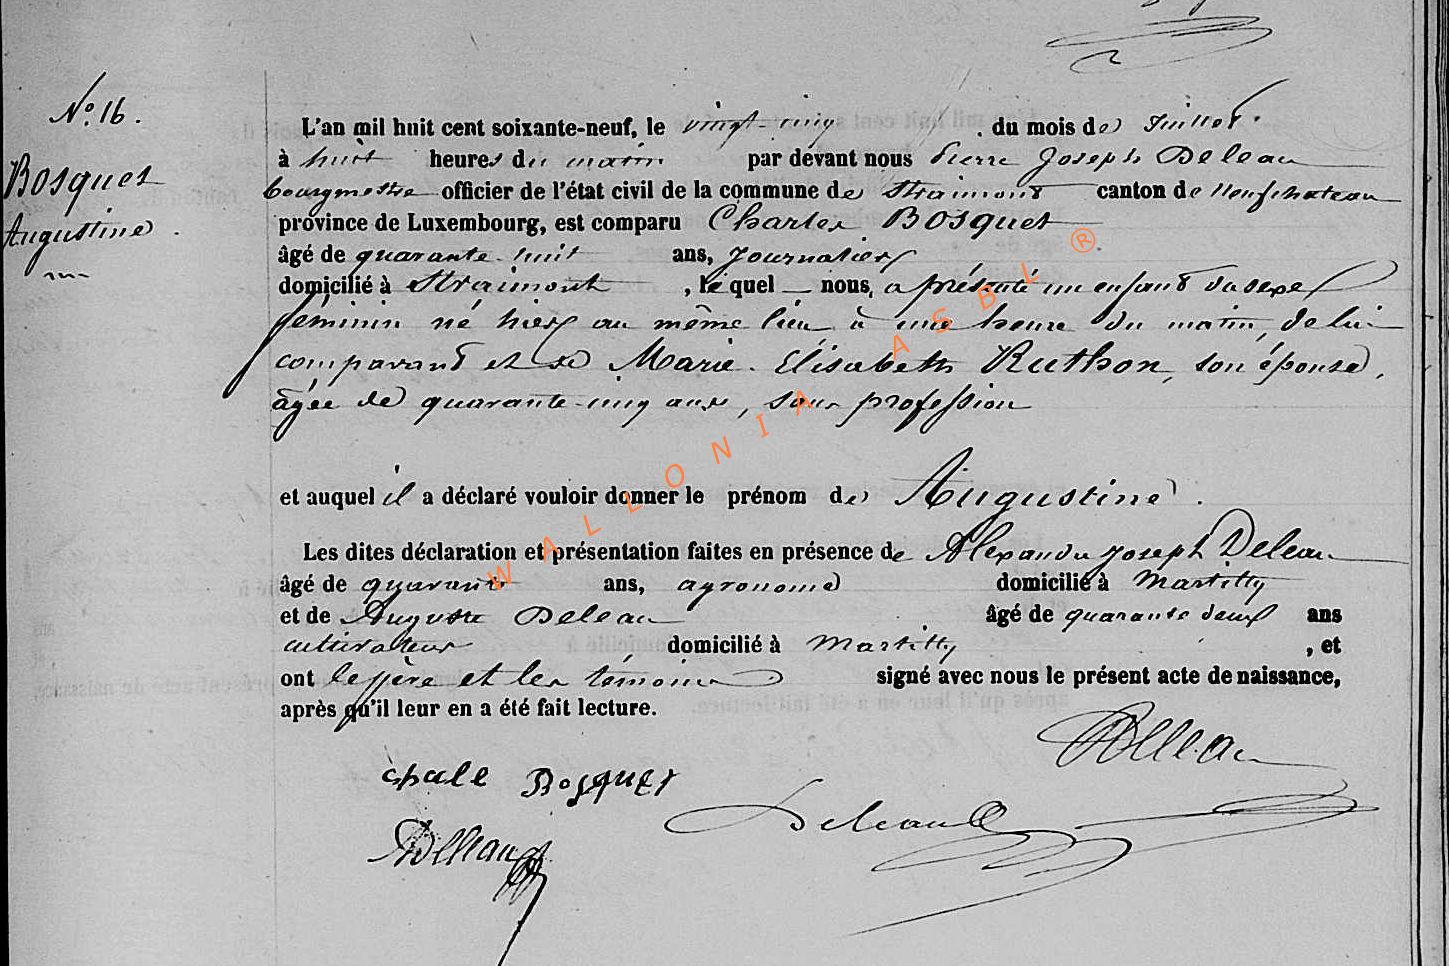 N° 16.
Bosquet
Augustine.
L'an mil huit cent soixante-neuf, le vingt-cinq du mois de Juillet
à huit heures du matin par devant nous Pierre Joseph Deleau
bourgmestre officier de l'état civil de la commune de Straimont canton de Neufchateau
province de Luxembourg, est comparu Charles Bosquet
âgé de quarante-huit ans, Journalier
domicilié à Straimont, lequel nous a présenté un enfant du sexe
féminin né hier au même lieu à une heure du matin, de lui
comparant et de Marie-Elisabeth Ruthon, son épouse,
âgée de quarante-cinq ans, sans profession
et auquel il a déclaré vouloir donner le prénom de Augustine.
Les dites déclaration et présentation faites en présence de Alexandre Joseph Deleau
âgé de quarante ans, agronome domicilié à Martilly
et de Auguste Deleau âgé de quarante deux ans
cultivateur domicilié à Martilly, et
ont le père et les témoins signé avec nous le présent acte de naissance,
après qu'il leur en a été fait lecture.
ADeleau
chale Bosquet
Deleau
ADeleau
WALLONIA ASBL ®